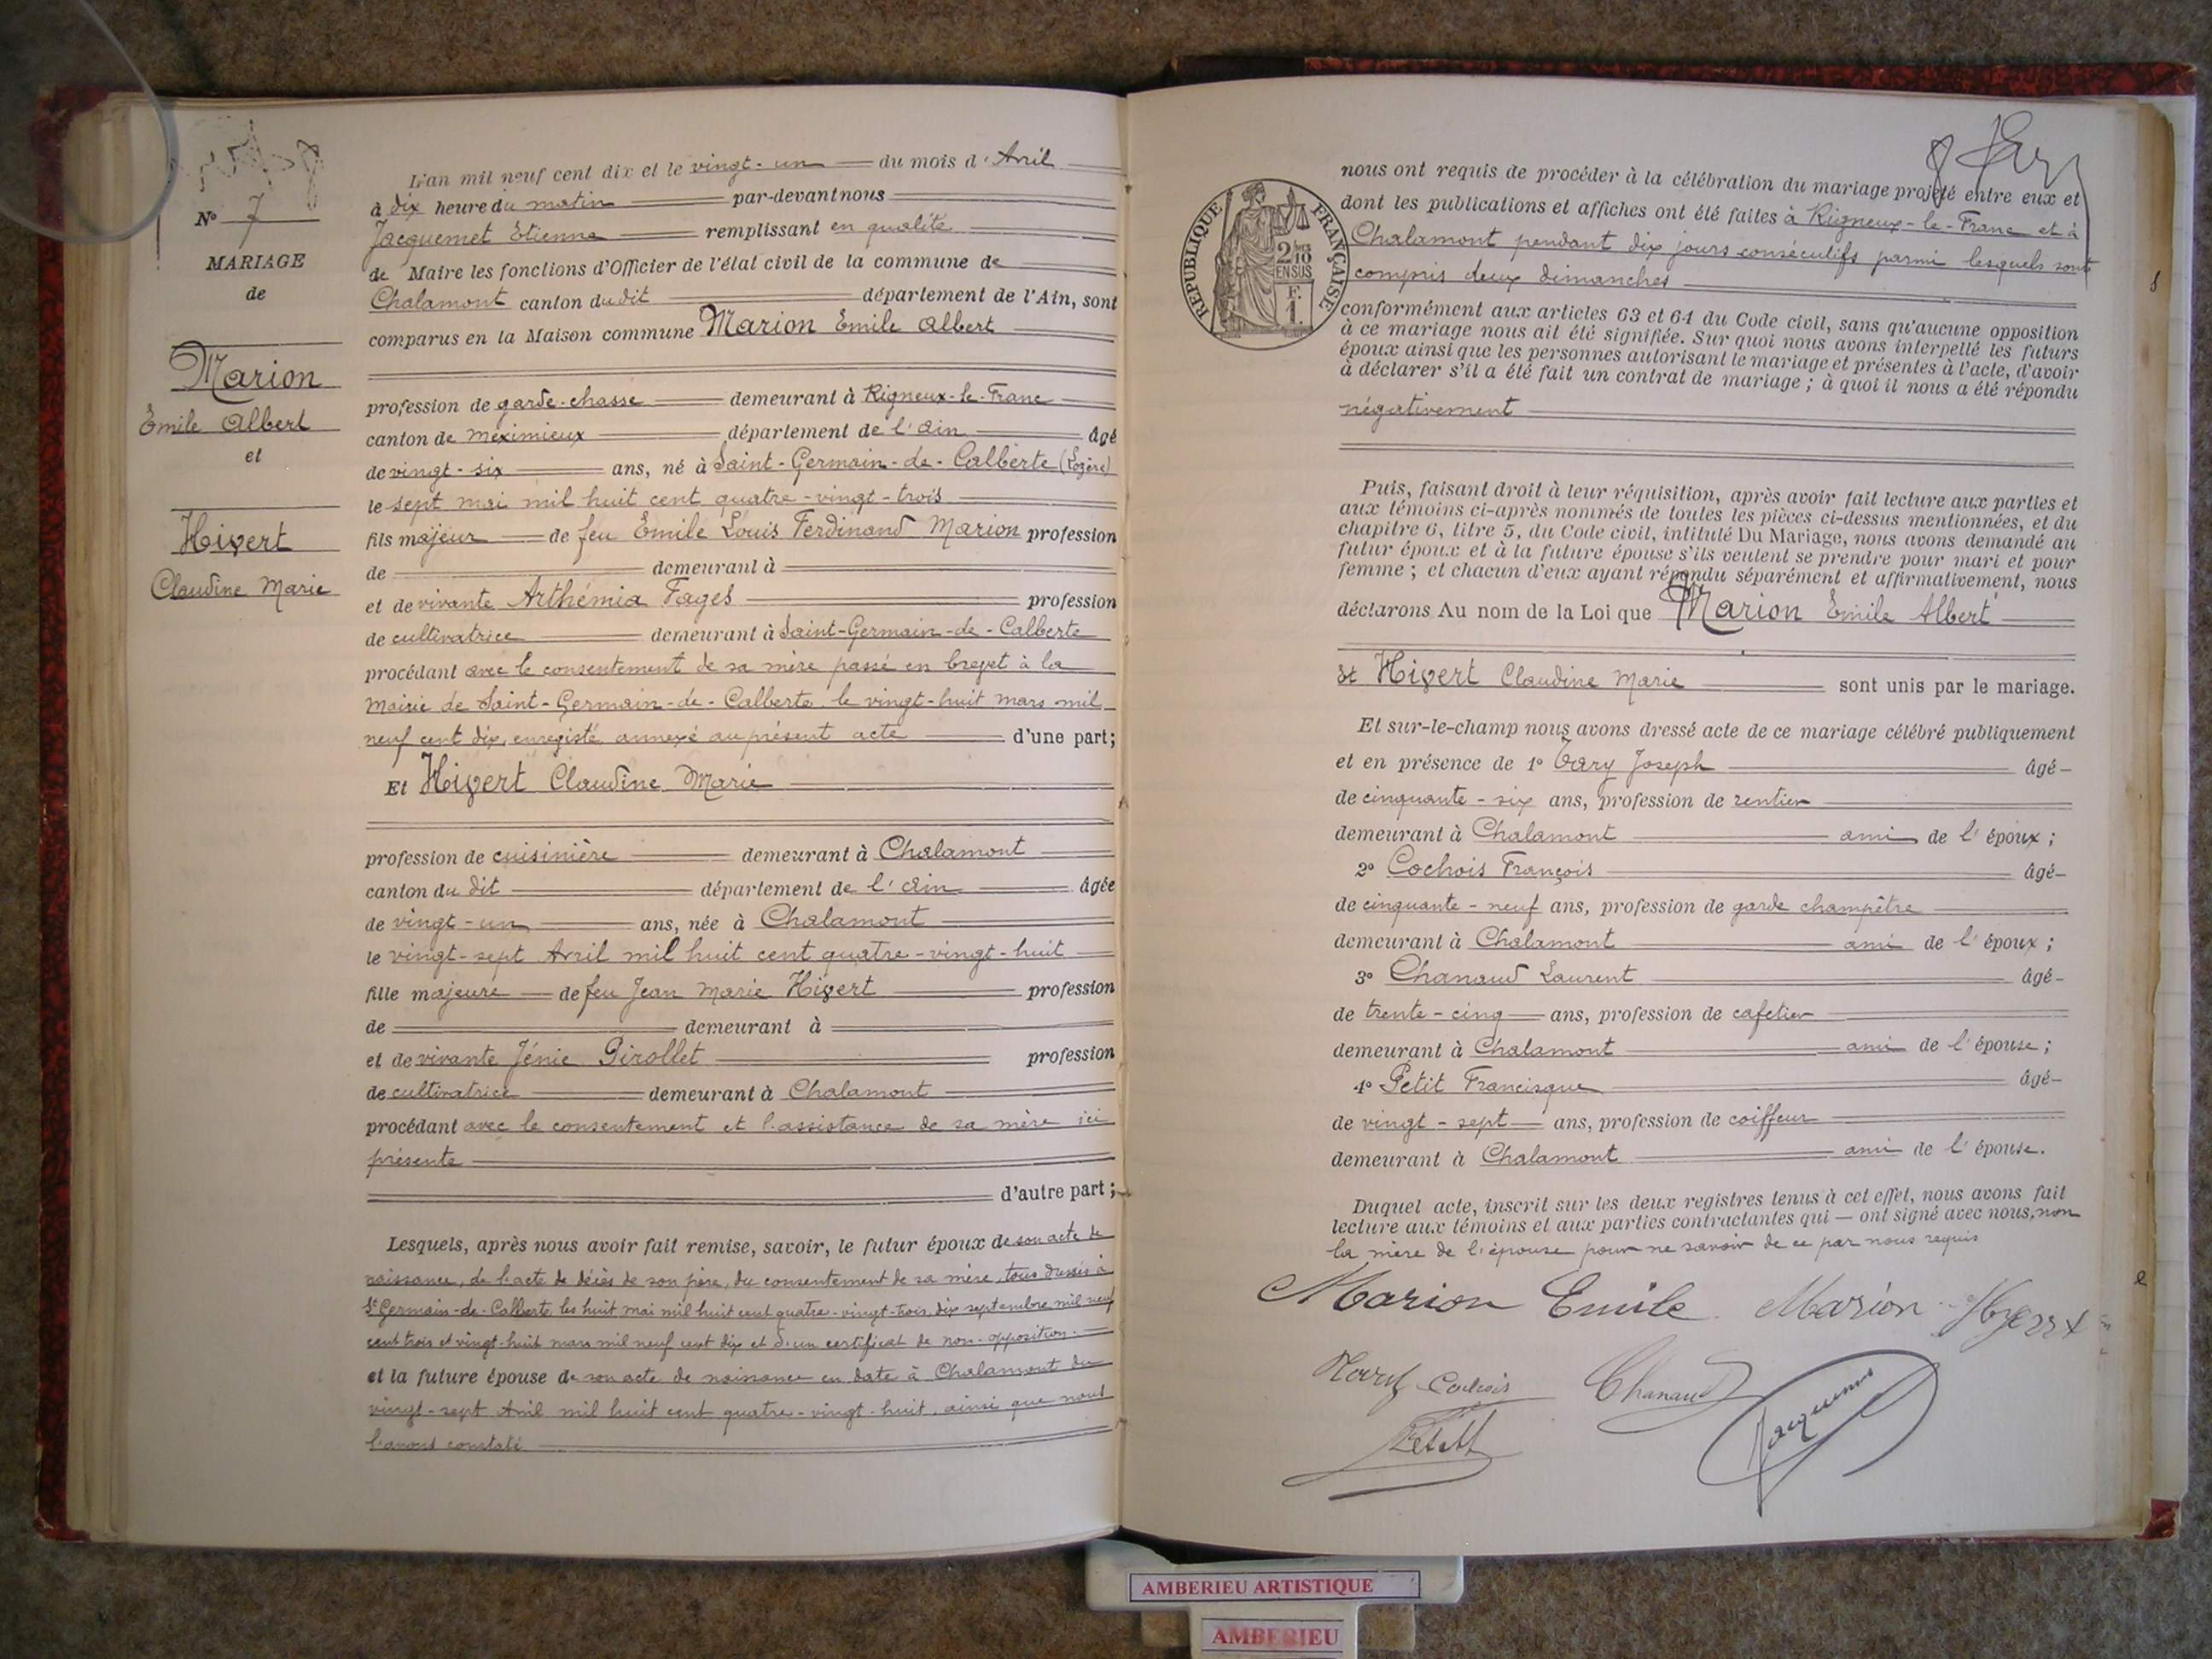 N° 7
MARIAGE
de
Marion
Emile Albert
et
Hivert
Claudine Marie
L'an mil neuf cent dix et le vingt-un du mois d'Avril
à dix heure du matin par-devant nous
Jacquemet Etienne remplissant en qualité
de Maire les fonctions d'Officier de l'état civil de la commune de
Chalamont canton du dit département de l'Ain, sont
comparus en la Maison commune Marion Emile Albert
profession de garde-chasse demeurant à Rigneux-le-Franc
canton de Meximieux département de l'Ain âgé
de vingt-six ans, né à Saint-Germain-de-Calberte (Lozère)
le sept mai mil huit cent quatre-vingt-trois
fils majeur de feu Emile Louis Ferdinand Marion profession
de demeurant à
et de vivante Arthémia Fages profession
de cultivatrice demeurant à Saint-Germain-de-Calberte
procédant avec le consentement de sa mère passé en brevet à la
mairie de Saint-Germain-de-Calberte, le vingt-huit mars mil
neuf cent dix, enregisté annexé au présent acte d'une part;
Et Hivert Claudine Marie
profession de cuisinière demeurant à Chalamont
canton du dit département de l'Ain âgée
de vingt-un ans, née à Chalamont
le vingt-sept Avril mil huit cent quatre-vingt-huit
fille majeure de feu Jean Marie Hivert profession
de demeurant à
et de vivante Jénie Pirollet profession
de cultivatrice demeurant à Chalamont
procédant avec le consentement et l'assistance de sa mère ici
présente
d'autre part;
Lesquels, après nous avoir fait remise, savoir, le futur époux de son acte de
naissance, de l'acte de décès de son père, du consentement de sa mère, tous dressés à
St Germain-de-Calberte, les huit mai mil huit cent quatre-vingt-trois, dix septembre mil neuf
cent trois et vingt-huit mars mil neuf cent dix et d'un certificat de non-opposition
et la future épouse de son acte de naissance en date à Chalamont du
vingt-sept Avril mil huit cent quatre-vingt-huit, ainsi que nous
l'avons constaté
RÉPUBLIQUE FRANÇAISE
2/10
EN SUS
F.
1.
nous ont requis de procéder à la célébration du mariage projeté entre eux et
dont les publications et affiches ont été faites à Rigneux-le-Franc et à
Chalamont pendant dix jours consécutifs parmi lesquels sont
compris deux dimanches
conformément aux articles 63 et 64 du Code civil, sans qu'aucune opposition
à ce mariage nous ait été signifiée. Sur quoi nous avons interpellé les futurs
époux ainsi que les personnes autorisant le mariage et présentes à l'acte, d'avoir
à déclarer s'il a été fait un contrat de mariage; à quoi il nous a été répondu
négativement
Puis, faisant droit à leur réquisition, après avoir fait lecture aux parties et
aux témoins ci-après nommés de toutes les pièces ci-dessus mentionnées, et du
chapitre 6, titre 5, du Code civil, intitulé Du Mariage, nous avons demandé au
futur époux et à la future épouse s'ils veulent se prendre pour mari et pour
femme; et chacun d'eux ayant répondu séparément et affirmativement, nous
déclarons Au nom de la Loi que Marion Emile Albert
Et Hivert Claudine Marie sont unis par le mariage.
Et sur-le-champ nous avons dressé acte de ce mariage célébré publiquement
et en présence de 1° Joseph âgé
de cinquante-six ans, profession de rentier
demeurant à Chalamont ami de l'époux;
2° Cochois François âgé
de cinquante-neuf ans, profession de garde champêtre
demeurant à Chalamont ami de l'époux;
3° Chanaud Laurent âgé
de trente-cinq ans, profession de cafetier
demeurant à Chalamont ami de l'épouse;
4° Petit Francisque âgé
de vingt-sept ans, profession de coiffeur
demeurant à Chalamont ami de l'épouse.
Duquel acte, inscrit sur les deux registres tenus à cet effet, nous avons fait
lecture aux témoins et aux parties contractantes qui ont signé avec nous, non
la mère de l'épouse pour ne savoir de ce par nous requis
Marion Emile Marion
Cochois Chanaud
Petit Jacquemet
AMBERIEU ARTISTIQUE
AMBERIEU